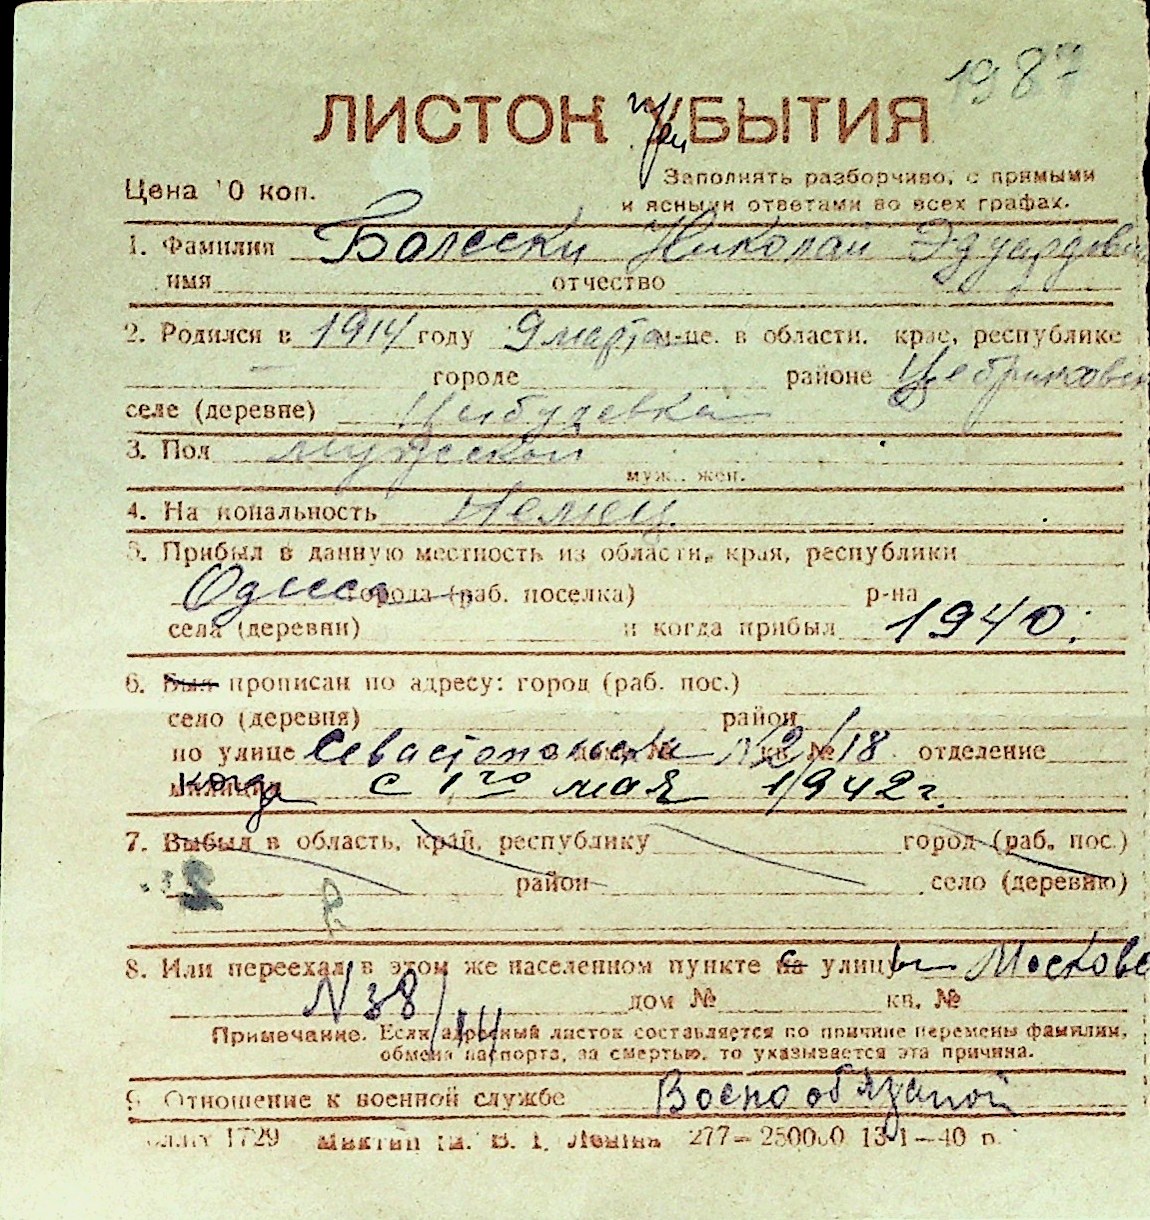 1987
ЛИСТОК УБЫТИЯ
Цена 10 коп.
Заполнять разборчиво, с прямыми
и ясными ответами во всех графах.
1. Фамилия Болески Николай Эдуардович
имя отчество
2. Родился в 1914 году 9 марта м-це. в области, крае, республике
городе районе Цебриковск
селе (деревне) Цыбулевка
3. Пол мужской
муж. жен.
4. Национальность Немец
5. Прибыл в данную местность из области, края, республики
Одесса города (раб. поселка) р-на
села (деревни) и когда прибыл 1940.
6. Был прописан по адресу: город (раб. пос.)
село (деревня) район
по улице Севастопольска дом № N2/18 кв. № отделение
милиции когда с 1го мая 1942 г.
7. Выбыл в область, край, республику город (раб. пос.)
район село (деревню)
8. Или переехал в этом же населенном пункте с на улицы Московс
N38/14 дом № кв. №
Примечание. Если адресный листок составляется по причине перемены фамилии,
обмена паспорта, за смертью, то указывается эта причина.
9. Отношение к военной службе Воено обязаной
1729 277—250000 13-1—40 р.